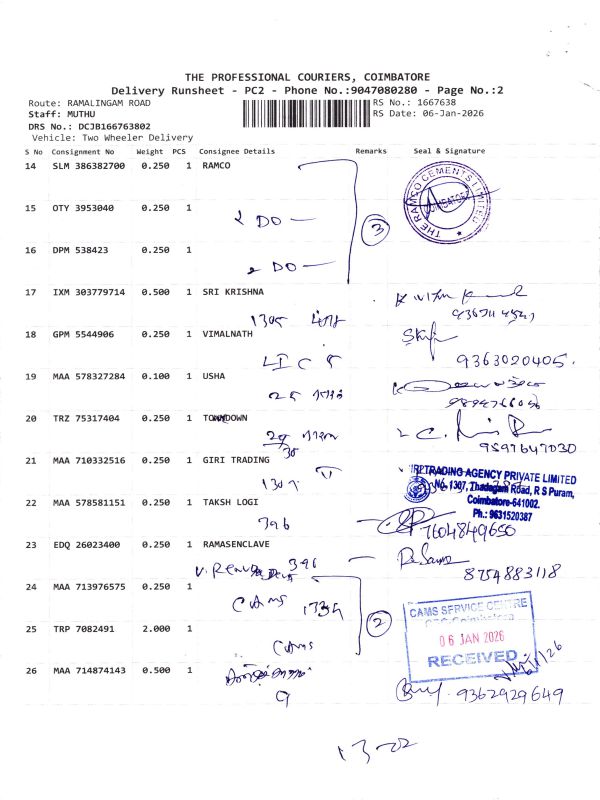 THE PROFESSIONAL COURIERS, COIMBATORE
Delivery Runsheet - PC2 - Phone No.:9047080280 - Page No.:2
Route: RAMALINGAM ROAD RS No.: 1667638
Staff: MUTHU RS Date: 06-Jan-2026
DRS No.: DCJB166763802
Vehicle: Two Wheeler Delivery
S No Consignment No Weight PCS Consignee Details Remarks Seal & Signature
14 SLM 386382700 0.250 1 RAMCO
THE RAMCO CEMENTS LIMITED
15 OTY 3953040 0.250 1
DO —
3
16 DPM 538423 0.250 1
DO —
17 IXM 303779714 0.500 1 SRI KRISHNA
1305
18 GPM 5544906 0.250 1 VIMALNATH
LIC
9363020405.
19 MAA 578327284 0.100 1 USHA
25
20 TRZ 75317404 0.250 1 TOWNDOWN
9597647030
21 MAA 710332516 0.250 1 GIRI TRADING
1307
TRADING AGENCY PRIVATE LIMITED
No. 1307, Thadagam Road, R S Puram,
Coimbatore-641002.
Ph.: 9631520387
22 MAA 578581151 0.250 1 TAKSH LOGI
396
7604849650
23 EDQ 26023400 0.250 1 RAMASENCLAVE
396 —
8754883118
24 MAA 713976575 0.250 1
CAMS 1334
CAMS SERVICE CENTRE
06 JAN 2026
RECEIVED
25 TRP 7082491 2.000 1
CAMS
2
26 MAA 714874143 0.500 1
9
9362929649
13-22